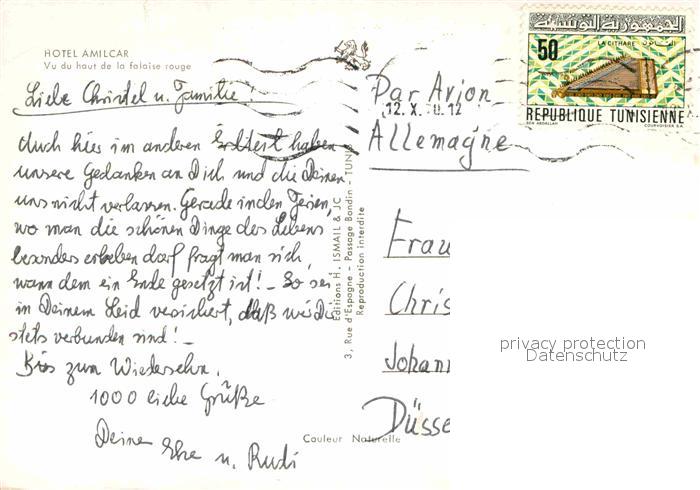 HOTEL AMILCAR
Vu du haut de la falaise rouge
Liebe Christel u. Familie!
Auch hier im anderen Erdteil haben
unsere Gedanken an Dich und die Deinen
uns nicht verlassen. Gerade in den Ferien,
wo man die schönen Dinge des Lebens
besonders erleben darf fragt man sich,
wann dem ein Ende gesetzt ist! – So sei
in Deinem Leid versichert, daß wir Dir
stets verbunden sind! –
Bis zum Wiedersehn.
1000 liebe Grüße
Deine
u. Rudi
Couleur Naturelle
Editions H. ISMAIL & JC
3, Rue d'Espagne - Passage Bondin - TUNIS
Reproduction interdite
الجمهورية التونسية
50
LA CITHARE
REPUBLIQUE TUNISIENNE
BEN ABDALLAH
COURVOISIER S.A.
12. X.
Par Avion
Allemagne
Frau
Chris
Johann
Düsse
privacy protection
Datenschutz